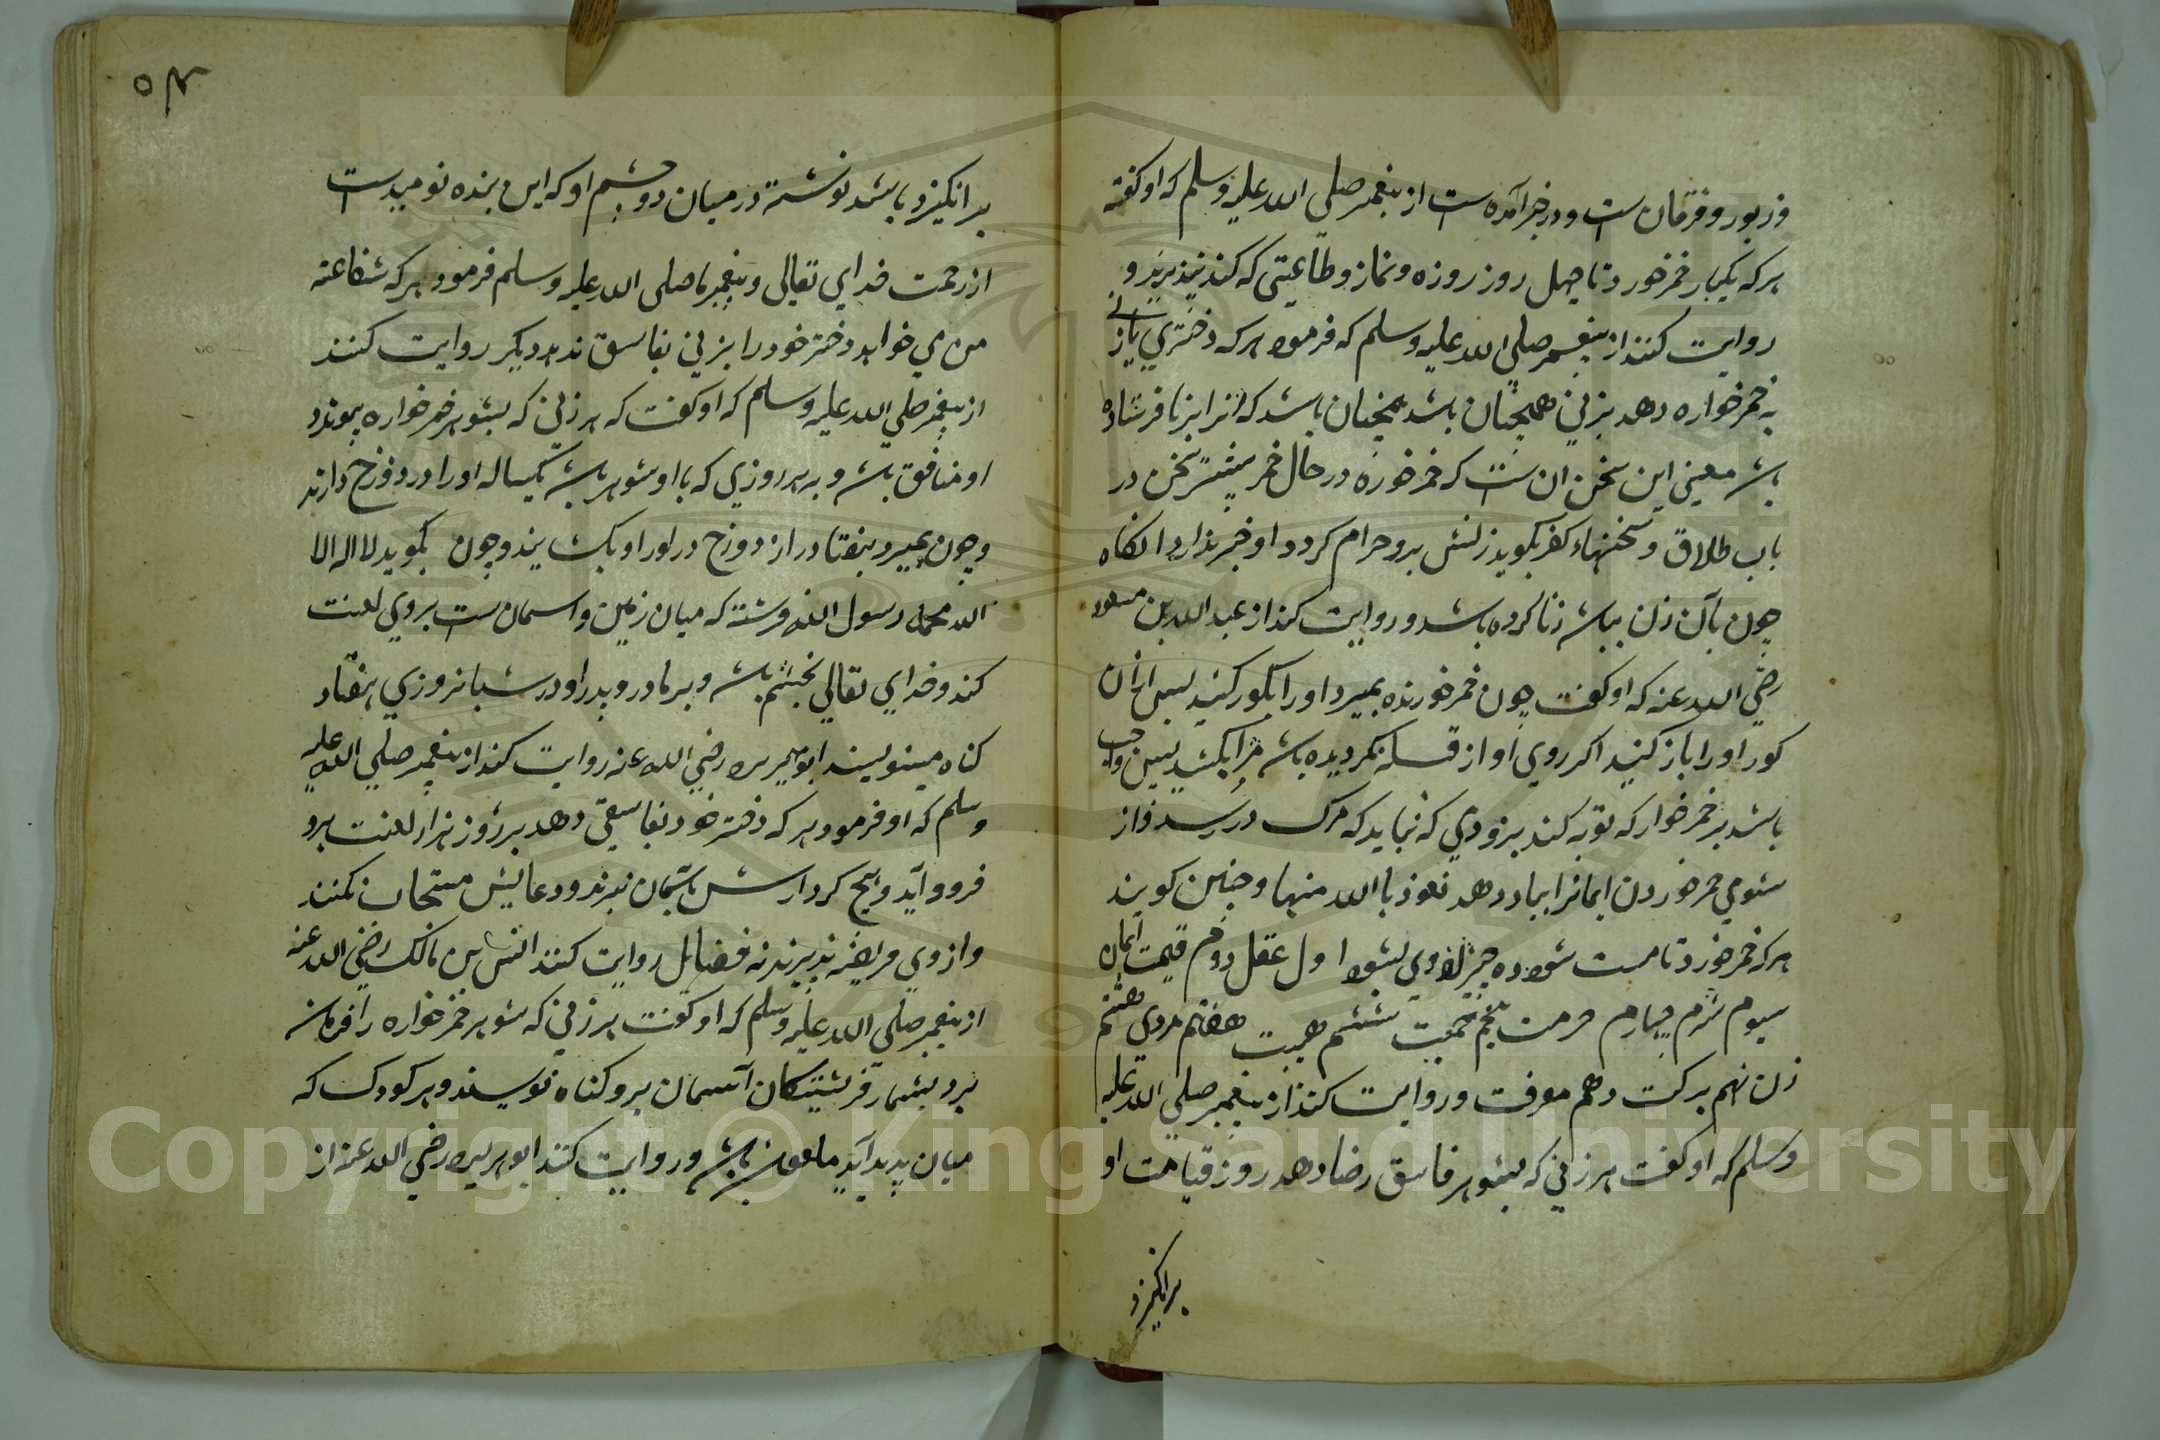 وزبور و فرقان ست و در خبر آمده ست از پیغمبر صلي الله علیه وسلم که او کفته
هرکه یکبار خمر خورد تا چهل روز روزه و نماز و طاعتی که کند نپذیرند و
روایت کنند از پیغمبر صلي الله علیه وسلم که فرمود هرکه دختري یا زنی
به خمر خواره دهد بزني همچنان باشد همچنان باشد که انرا بزنا فرستاده
باشد معنی این سخن ان ست که خمر خوره در حال خمر بیشتر سخن در
باب طلاق و سخنهاء کفر بکوید زنش برو حرام کردد او خبر ندارد انکاه
چون بآن زن بباشد زنا کرده باشد و روایت کند از عبد الله بن مسعود
رضي الله عنه که او کفت چون خمر خورنده بمیرد او را بکور کنید پس ازان
کور او را باز کنید اکر روي او از قبله نکردیده باشد مرا بکشید پس واجب
باشد بر خمر خوار که توبه کند بزودي که نباید که مرک در رسد و از
شومي خمر خوردن ایمانرا بباد دهد نعوذ بالله منها و چنین کویند
هرکه خمر خورد تا مست شود ده چیز از وي بشود اول عقل دوم قیمت ایمان
سیوم شرم چهارم حرمت پنجم حمیت ششم هیبت هفتم مردي هشتم
زن نهم برکت دهم معرفت و روایت کند از پیغمبر صلي الله علیه
وسلم که او کفت هر زني که بشوهر فاسق رضا دهد روز قیامت او
برانکیزد
۵۴
برانکیزد باشد نوشته در میان دو چشم او که این بنده نومیدست
از رحمت خداي تعالی و پیغمبر ما صلی الله علیه وسلم فرمود هرکه شفاعته
من مي خواهد دختر خود را بزني بفاسق ندهد دیکر روایت کنند
از پیغمبر صلي الله علیه وسلم که او کفت که هر زني که بشوهر خمر خواره پیوندد
او منافق باشد و بهر روزي که با او شوهر باشد یکساله او را در دوزخ دارند
و چون بمیرد هفتاد در از دوزخ در کور او بکشایند و چون بکوید لا اله الا
الله محمد رسول الله فرشته که میان زمین و اسمان ست بروي لعنت
کند و خداي تعالي بخشم باشد و بر مادر و پدر او در شبانروزي هفتاد
کناه مینویسند ابو هریره رضي الله عنه روایت کند از پیغمبر صلي الله علیه
وسلم که او فرمود هرکه دختر خود بفاسقي دهد هر روز هزار لعنت برو
فرود آید و هیچ کردارش بآسمان نبرند و دعایش مستجاب نکنند
و از وي فریضه نپذیرند نه فضایل روایت کنند انس بن مالک رضي الله عنه
از پیغمبر صلي الله علیه وسلم که او کفت هر زني که شوهر خمر خواره را فرمان
برد بشمار فرشتکان آسمان برو کناه نویسند و هر کودک که
میان پدید آید ملعون باشد و روایت کنند ابو هریره رضي الله عنه از
Copyright © King Saud University